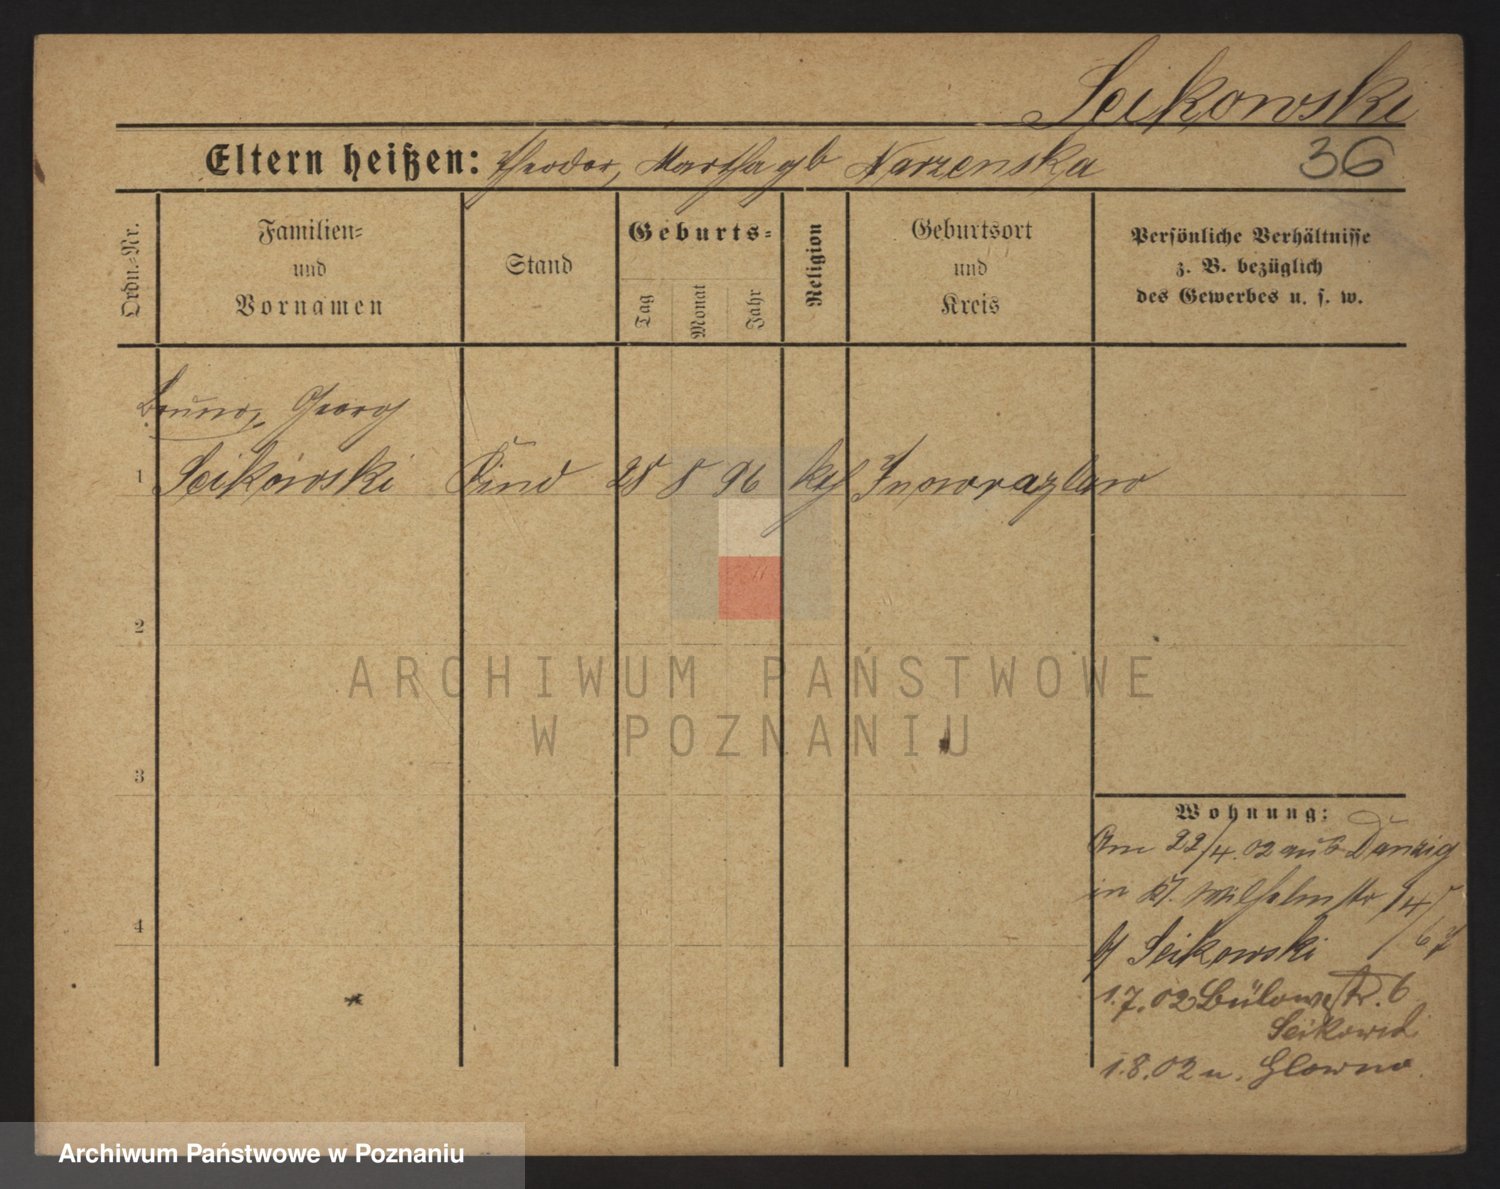 Seikowski
Eltern heißen: Theodor, Martha gb Narzenska
36
Ordn.-Nr.
Familien-
und
Vornamen
Stand
Geburts-
Tag
Monat
Jahr
Religion
Geburtsort
und
Kreis
Persönliche Verhältnisse
z. B. bezüglich
des Gewerbes u. s. w.
Bruno, Georg
1 Seikowski Kind 28 8 96 kth Inowrazlaw
2
3
4
Wohnung:
Am 22/4. 02 aus Danzig
in Wilhelmstr 14
b/ Seikowski
1.7.02 Bülowstr. 6
Seikowski
1.8.02 n. Glowno.
ARCHIWUM PAŃSTWOWE
W POZNANIU
Archiwum Państwowe w Poznaniu